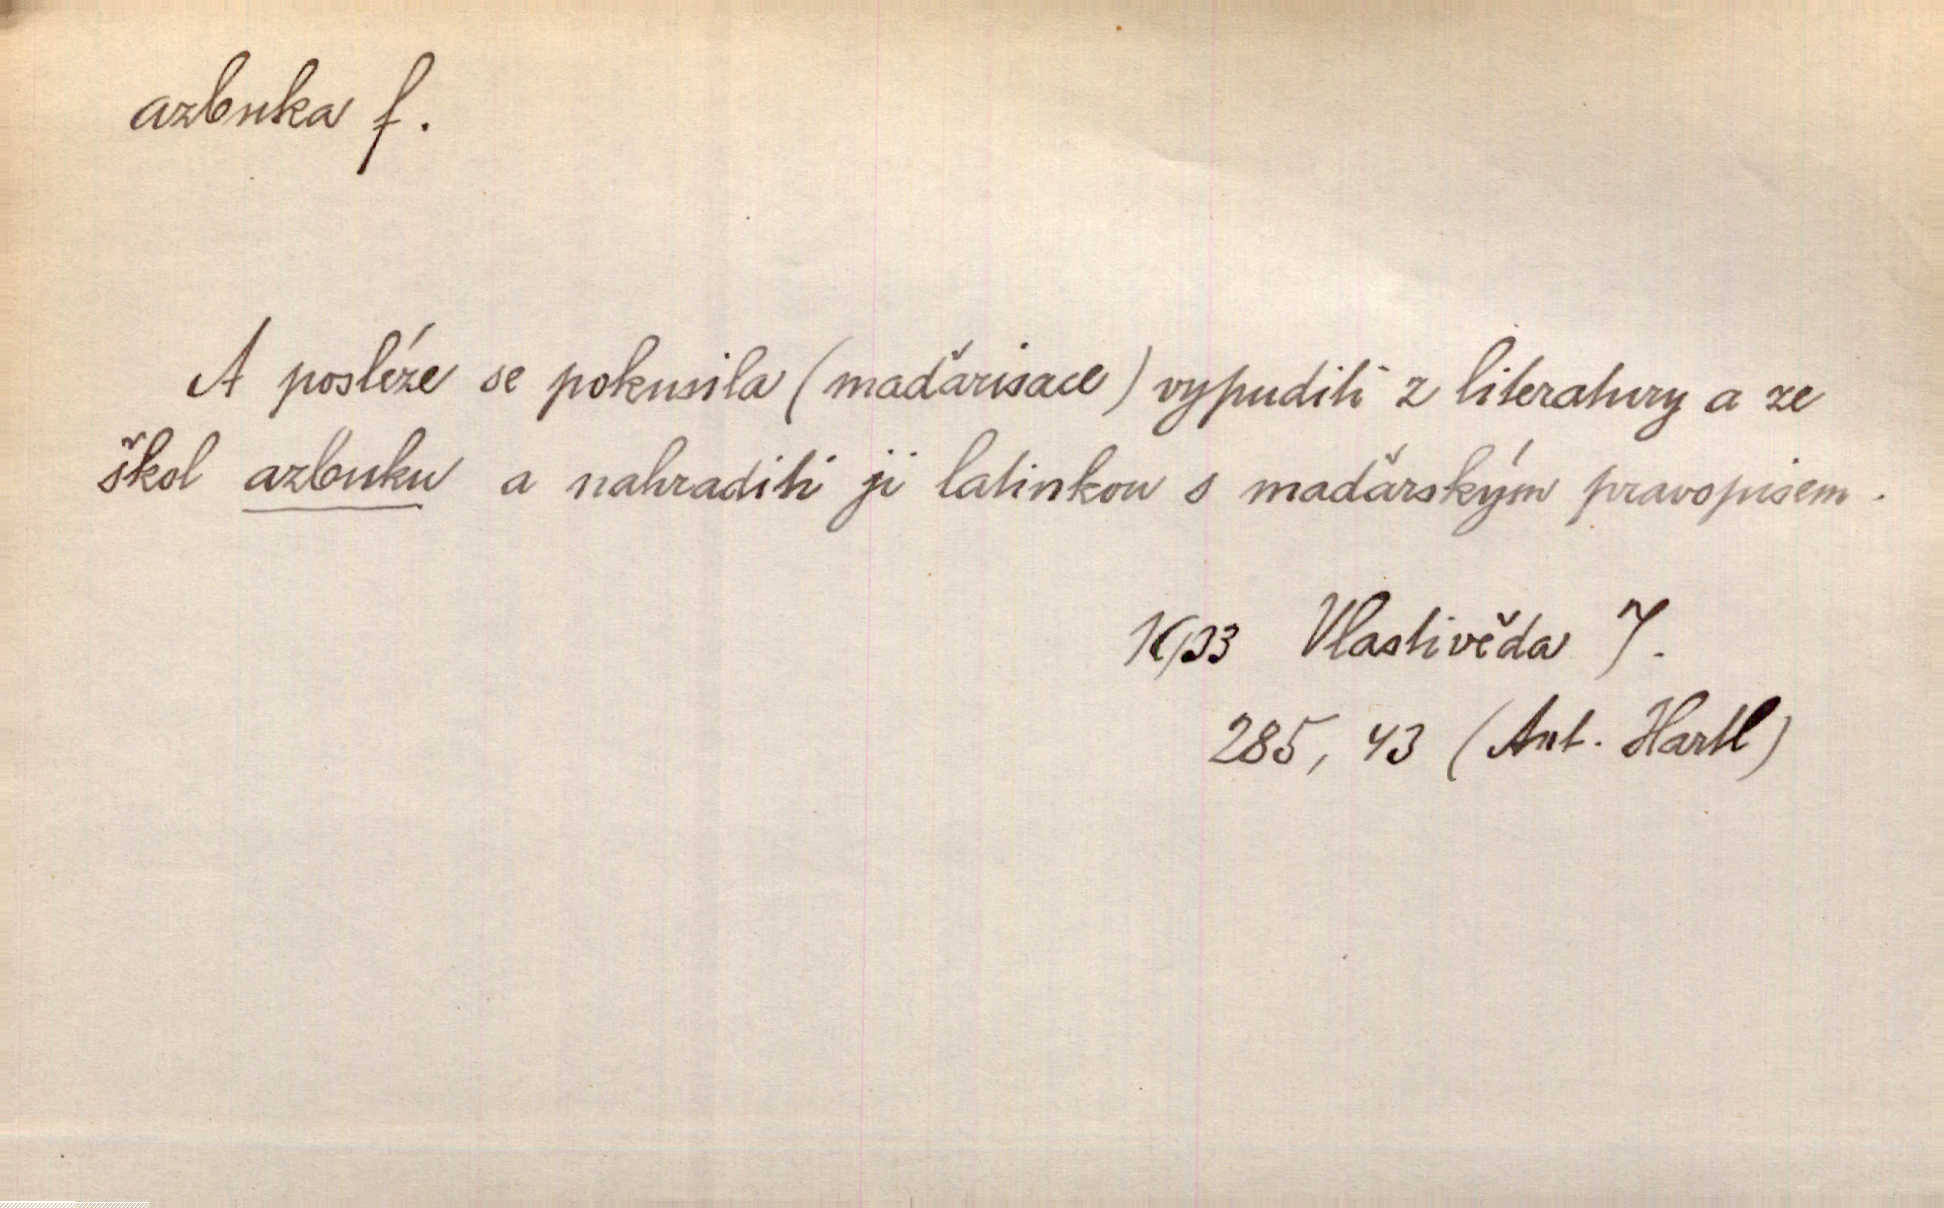 azbuka f.
A posléze se pokusila (maďarisace) vypuditi z literatury a ze
škol azbuku a nahraditi ji latinkou s maďarským pravopisem.
Vlastivěda 7.
285, 43 (Ant. Hartl)